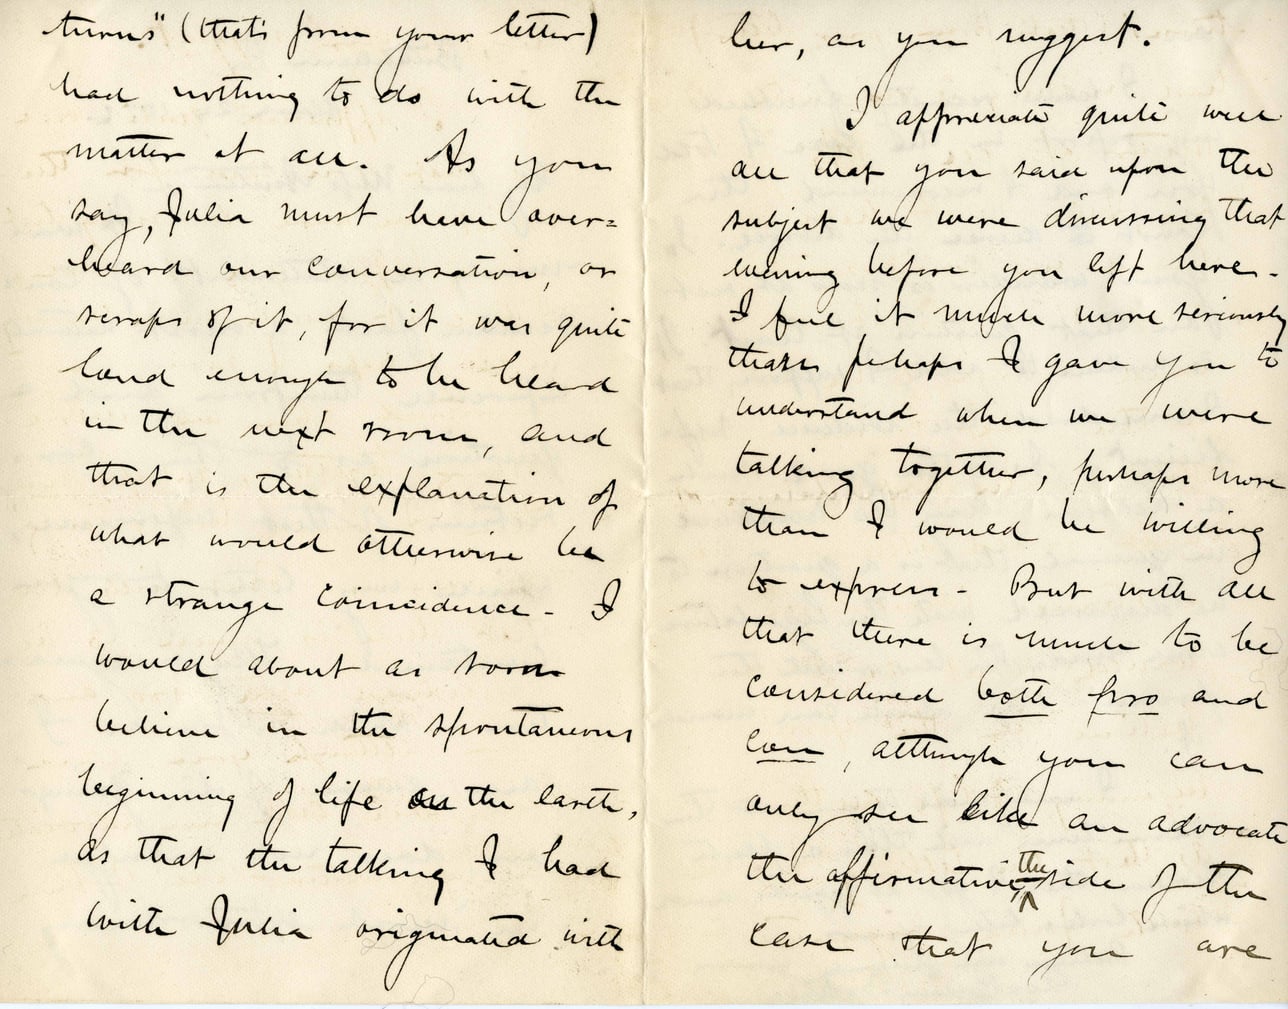 turns" (that's from your letter)
had nothing to do with the
matter at all. As you
say, Julia must have over=
heard our conversation, or
scraps of it, for it was quite
loud enough to be heard
in the next room, and
that is the explanation of
what would otherwise be
a strange coincidence - I
would about as soon
believe in the spontaneous
beginning of life on the earth,
as that the talking I had
with Julia originated with
her, as you suggest.
I appreciate quite well
all that you said upon the
subject we were discussing that
evening before you left here -
I feel it much more seriously
than perhaps I gave you to
understand when we were
talking together, perhaps more
than I would be willing
to express - But with all
that there is much to be
considered both pro and
con, although you can
only see like an advocate
the affirmative, the side of the
case that you are